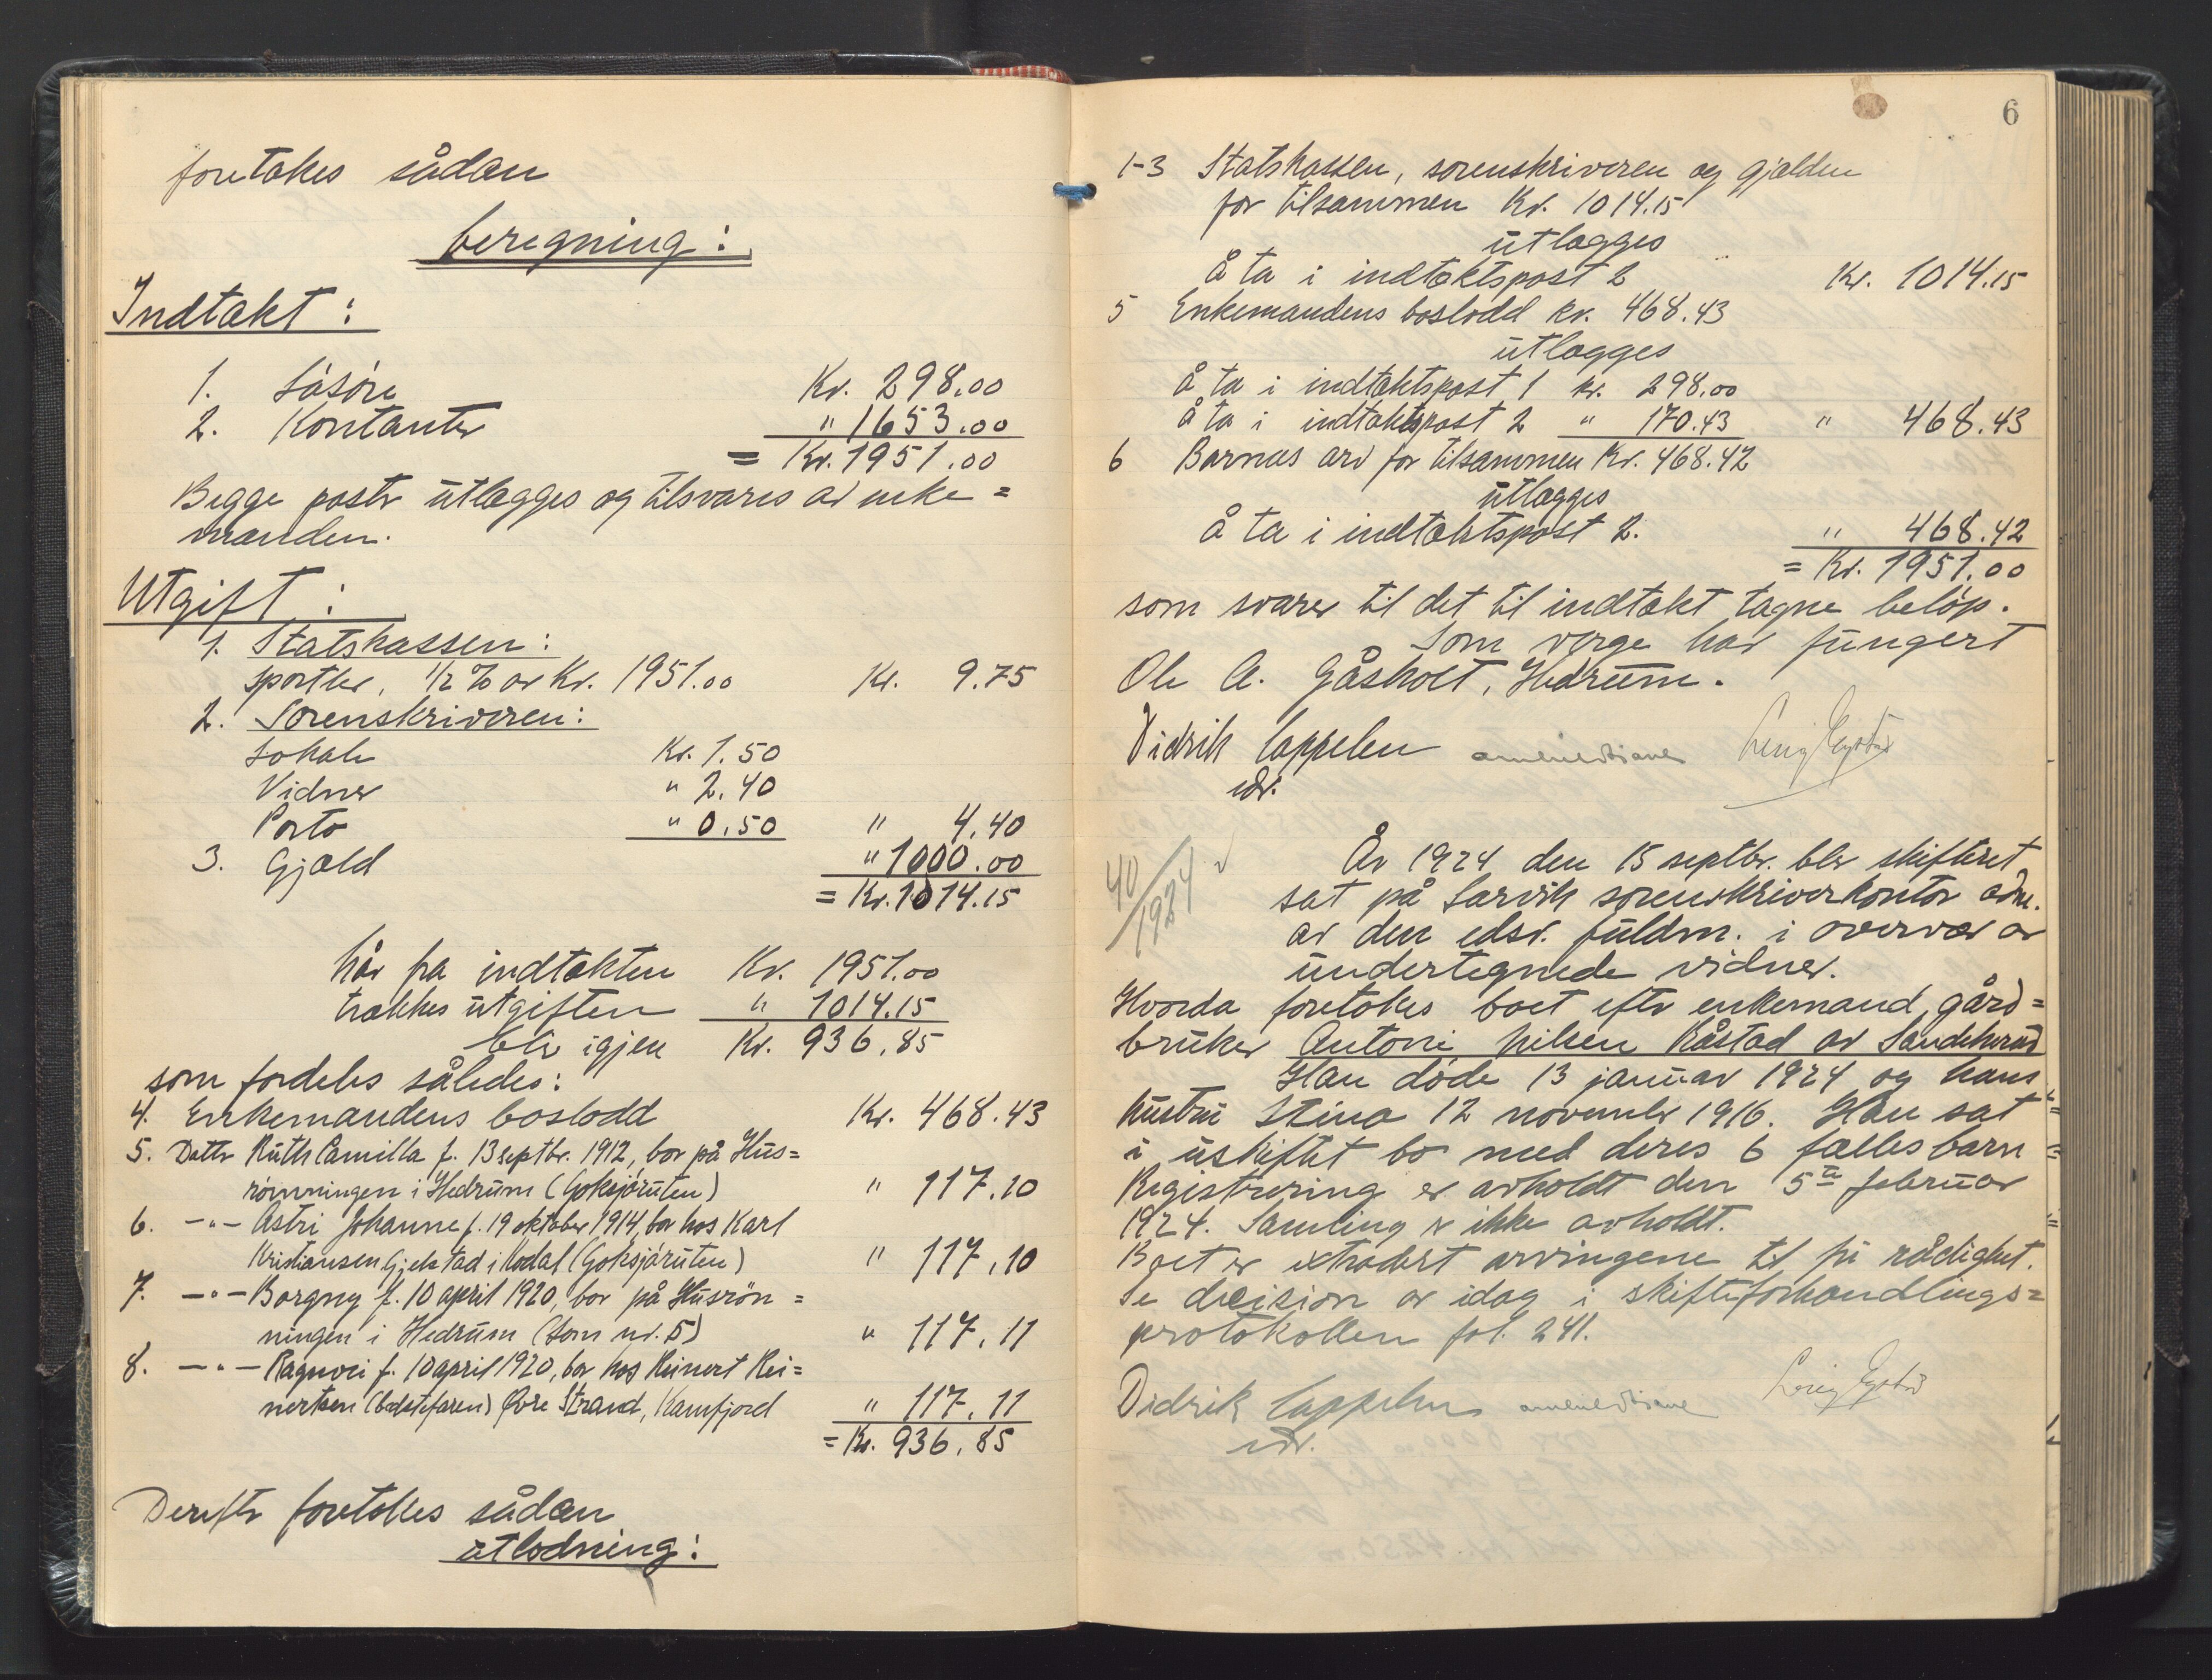 foretakes sådan
beregning:
Indtækt:
1. Løsøre Kr. 298.00
2. Kontanter " 1653.00
= Kr. 1951.00
Begge poster utlægges og tilsvares av enke=
manden.
Utgift:
1. Statskassen:
sportler, 1/2 % av Kr. 1951.00 Kr. 9.75
2. Sorenskriveren:
Lokale Kr. 1.50
Vidner " 2.40
Porto " 0.50 " 4.40
3. Gjæld " 1000.00
= Kr. 1014.15
når fra indtækten Kr. 1951.00
trækkes utgiften " 1014.15
blir igjen Kr. 936.85
som fordeles således:
4. Enkemandens boslodd Kr. 468.43
5. Datter Ruth Camilla f. 13 septbr. 1912, bor på Hus=
rønningen i Hedrum (Goksjøruten) " 117.10
6. -"- Astri Johanne f. 19 oktober 1914, bor hos Karl
Kristiansen Gjelstad i Kodal (Goksjøruten) " 117.10
7. -"- Borgny f. 10 april 1920, bor på Husrøn=
ningen i Hedrum (som nr. 5) " 117.11
8. -"- Ragnvi f. 10 april 1920, bor hos Reinert Rei=
nertsen (bedstefaren) Øvre Strand, Kamfjord " 117.11
= Kr. 936.85
Derefter foretokes sådan
utlodning:
6
1-3 Statskassen, sorenskriveren og gjælden
for tilsammen Kr. 1014.15
utlægges
å ta i indtæktspost 2 Kr. 1014.15
5 Enkemandens boslodd kr. 468.43
utlægges
å ta i indtæktspost 1 kr. 298.00
å ta i indtæktspost 2 " 170.43 " 468.43
6 Barnas arv for tilsammen Kr. 468.42
utlægges
å ta i indtæktspost 2. " 468.42
= Kr. 1951.00
som svarer til det til indtækt tagne beløp.
Som verge har fungert
Ole A. Gåsholt, Hedrum.
Didrik Cappelen
edsv.
40/1924
År 1924 den 15 septbr. blev skifteret
sat på Larvik sorenskriverkontor adm.
av den edsv. fuldm. i overvær av
undertegnede vidner.
Hvorda foretokes boet efter enkemand, gård=
bruker Antoni Nilsen Råstad av Sandeherad
Han døde 13 januar 1924 og hans
hustru Stina 12 november 1916. Han sat
i uskiftet bo med deres 6 fælles barn
Registrering er avholdt den 5te februar
1924. Samling er ikke avholdt.
Boet er extradert arvingene til fri rådighet.
Se decision av idag i skifteforhandlings=
protokollen fol. 241.
Didrik Cappelen
edsv.